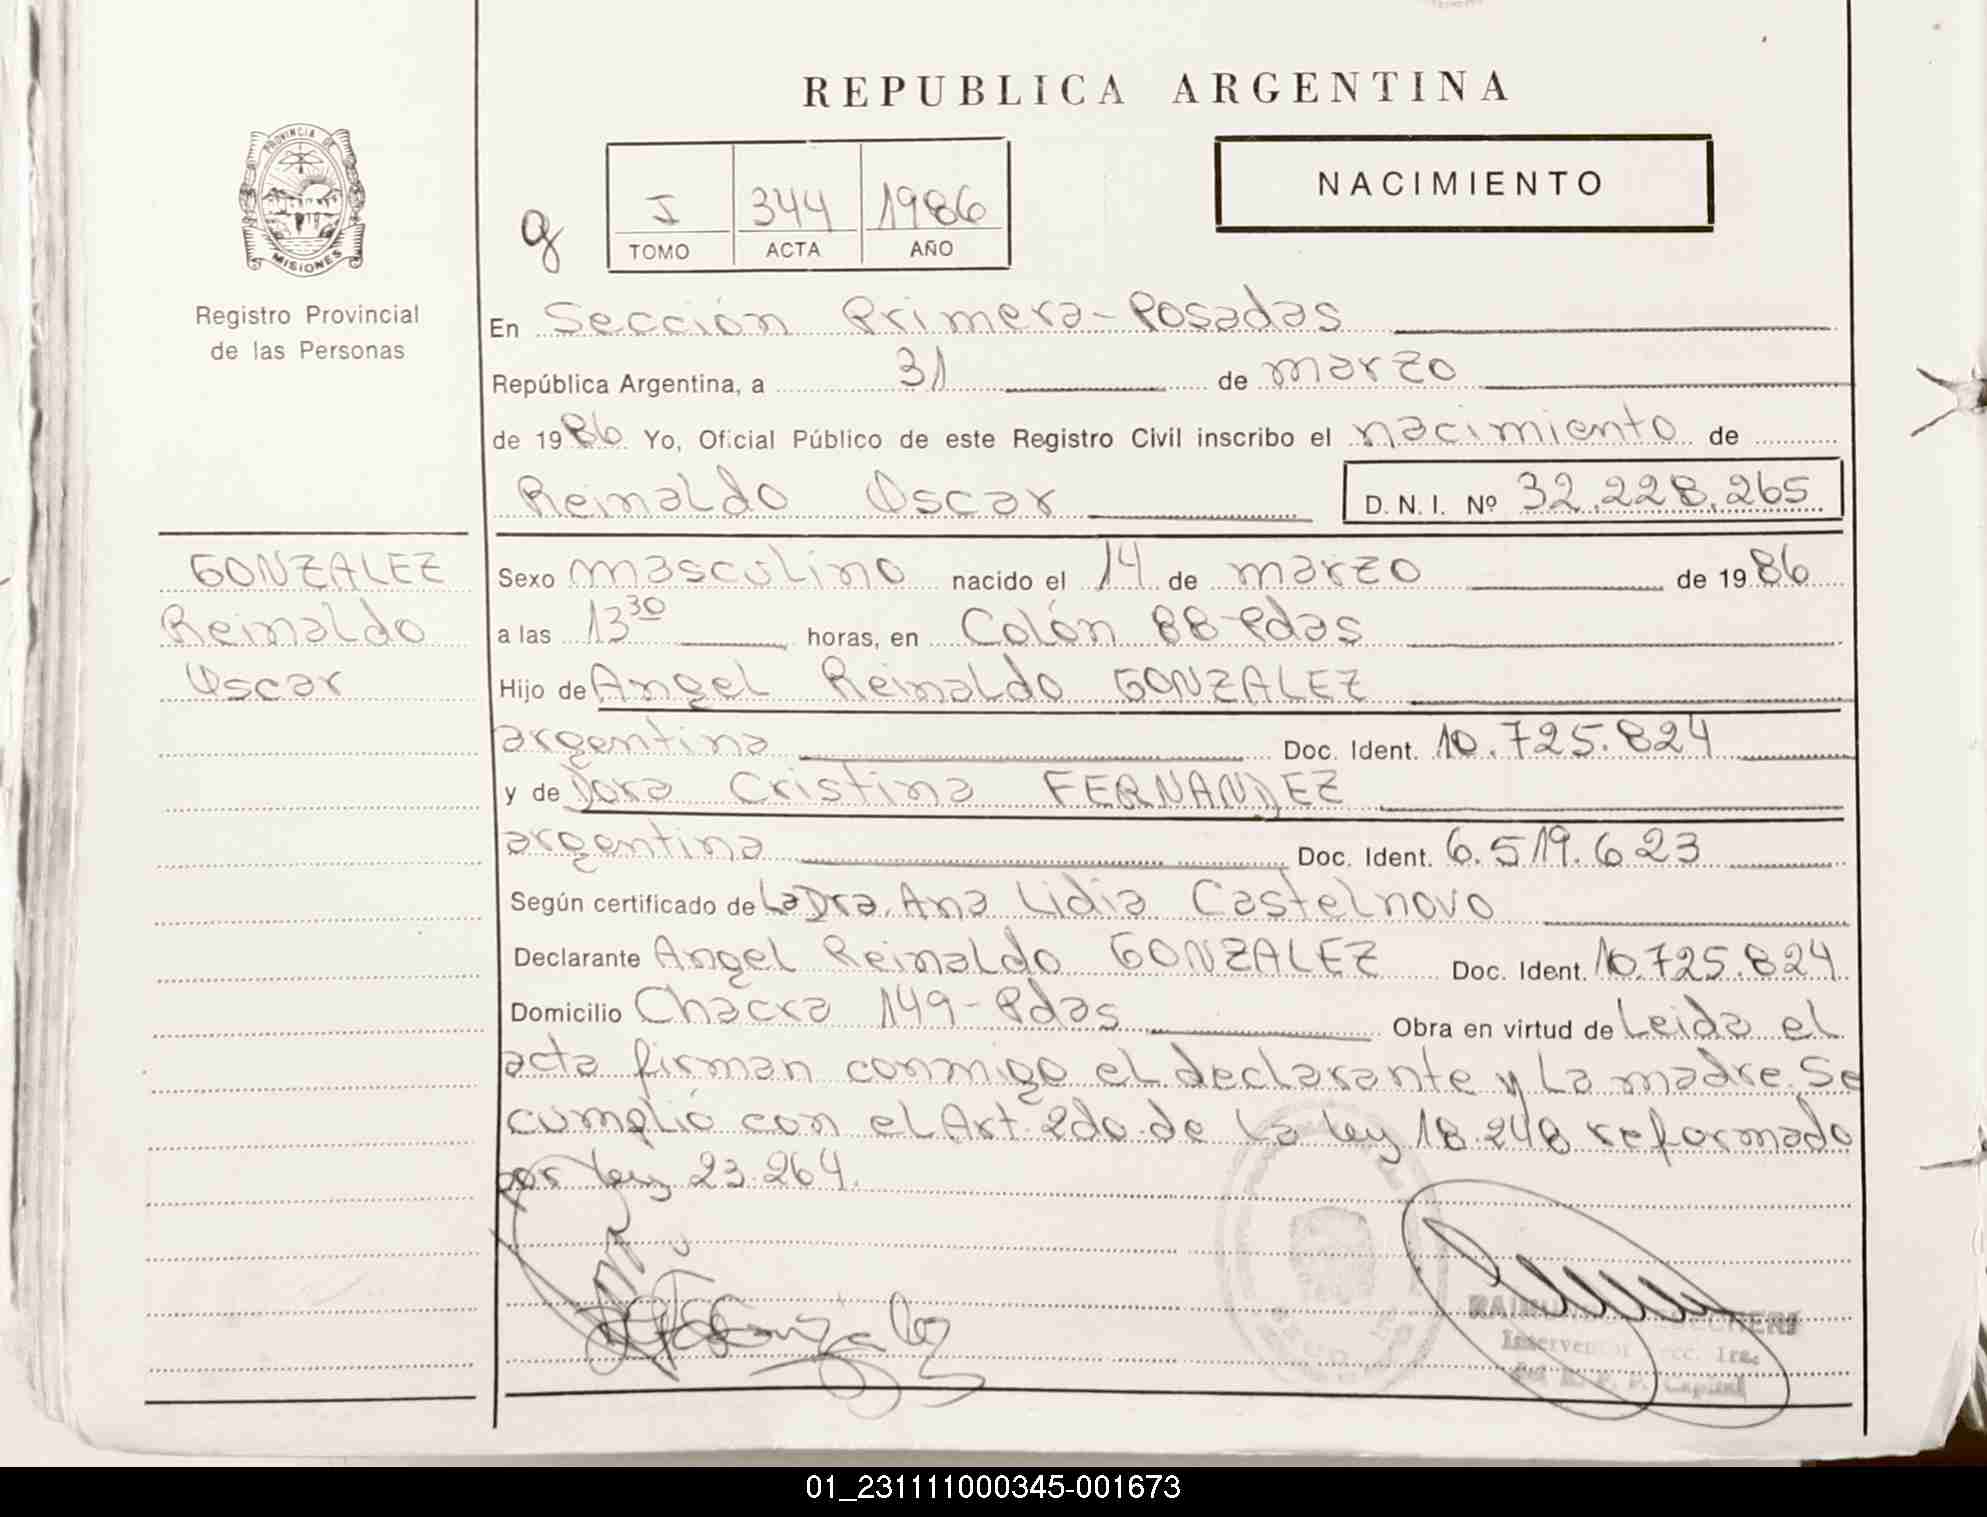 REPUBLICA ARGENTINA
PROVINCIA DE
MISIONES
Registro Provincial
de las Personas
I 344 1986
TOMO ACTA AÑO
NACIMIENTO
En Sección Primera - Posadas
República Argentina, a 31 de marzo
de 1986 Yo, Oficial Público de este Registro Civil inscribo el nacimiento de
Reinaldo Oscar D. N. I. Nº 32.228.265
GONZALEZ
Reinaldo
Oscar
Sexo masculino nacido el 14 de marzo de 1986
a las 13 30 horas, en Colón 88-Pdas
Hijo de Angel Reinaldo GONZALEZ
argentina Doc. Ident. 10.725.824
y de Dora Cristina FERNANDEZ
argentina Doc. Ident. 6.519.623
Según certificado de La Dra. Ana Lidia Castelnovo
Declarante Angel Reinaldo GONZALEZ Doc. Ident. 10.725.824
Domicilio Chacra 149 - Pdas Obra en virtud de Leida el
acta firman conmigo el declarante y La madre. Se
cumplió con el Art. 2do. de La Ley 18.248 reformado
por Ley 23.264.
Capital
01_231111000345-001673